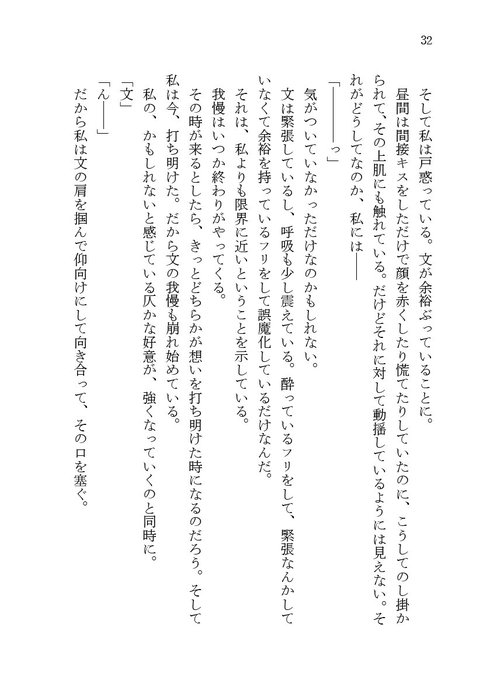 32
そして私は戸惑っている。文が余裕ぶっていることに。
昼間は間接キスをしただけで顔を赤くしたり慌てたりしていたのに、こうしてのし掛か
られて、その上肌にも触れている。だけどそれに対して動揺しているようには見えない。そ
れがどうしてなのか、私には――
「――――っ」
気がついていなかっただけなのかもしれない。
文は緊張しているし、呼吸も少し震えている。酔っているフリをして、緊張なんかして
いなくて余裕を持っているフリをして誤魔化しているだけなんだ。
それは、私よりも限界に近いということを示している。
我慢はいつか終わりがやってくる。
その時が来るとしたら、きっとどちらかが想いを打ち明けた時になるのだろう。そして
私は今、打ち明けた。だから文の我慢も崩れ始めている。
私の、かもしれないと感じている仄かな好意が、強くなっていくのと同時に。
「文」
「ん――」
だから私は文の肩を掴んで仰向けにして向き合って、その口を塞ぐ。